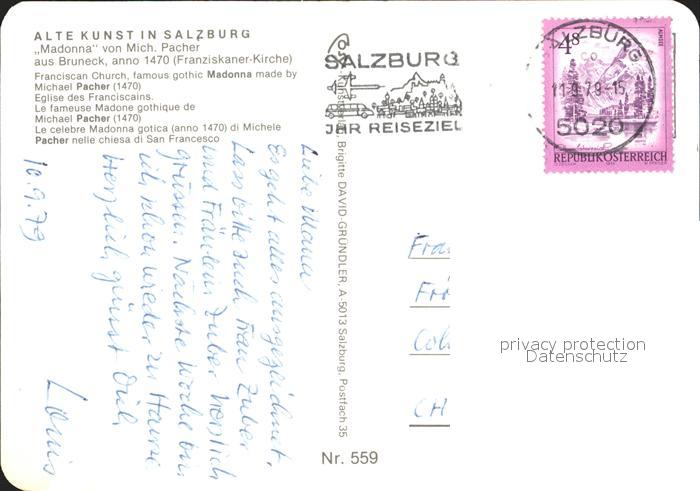 ALTE KUNST IN SALZBURG
„Madonna“ von Mich. Pacher
aus Bruneck, anno 1470 (Franziskaner-Kirche)
Franciscan Church, famous gothic Madonna made by
Michael Pacher (1470)
Eglise des Franciscains.
Le fameuse Madone gothique de
Michael Pacher (1470)
Le celebre Madonna gotica (anno 1470) di Michele
Pacher nelle chiesa di San Francesco
SALZBURG
IHR REISEZIEL
SALZBURG
5020
4S
ALMSEE
REPUBLIK ÖSTERREICH
Brigitte DAVID-GRÜNDLER, A-5013 Salzburg, Postfach 35
Liebe Mama
Es geht alles ausgezeichnet.
Lass bitte auch Frau Zuber
und Fräulein Zuber herzlich
grüssen. Nächste Woche bin
ich schon wieder zu Hause
Herzlich grüsst Dich
Louis
10.9.79
Frau
Frö
Col
CH
privacy protection
Datenschutz
Nr. 559